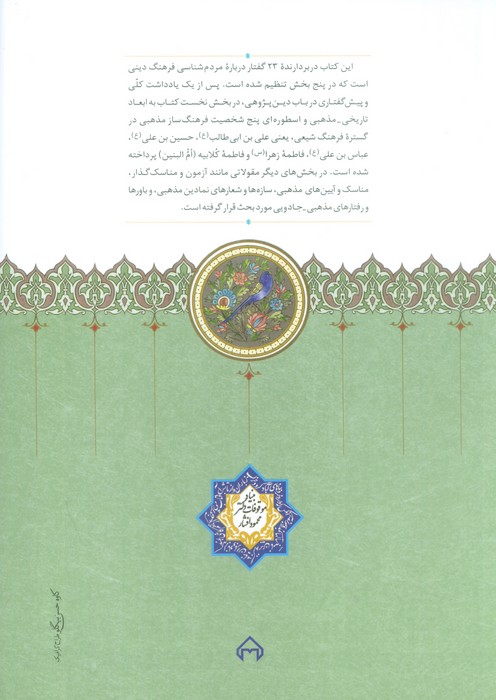 این کتاب دربردارندهٔ ۲۳ گفتار دربارهٔ مردم‌شناسی فرهنگ دینی
است که در پنج بخش تنظیم شده است. پس از یک یادداشت کلّی
و پیش‌گفتاری در باب دین‌پژوهی، در بخش نخست کتاب به ابعاد
تاریخی ـ مذهبی و اسطوره‌ای پنج شخصیت فرهنگ‌ساز مذهبی در
گسترهٔ فرهنگ شیعی، یعنی علی بن ابی‌طالب(ع)، حسین بن علی(ع)،
عباس بن علی(ع)، فاطمهٔ زهرا(س) و فاطمهٔ کلابیه (اُمُّ البنین) پرداخته
شده است. در بخش‌های دیگر مقولاتی مانند آزمون و مناسک‌گذار،
مناسک و آیین‌های مذهبی، سازه‌ها و شعارهای نمادین مذهبی، و باورها
و رفتارهای مذهبی ـ جادویی مورد بحث قرار گرفته است.
بنیاد
موقوفات دکتر
محمود افشار